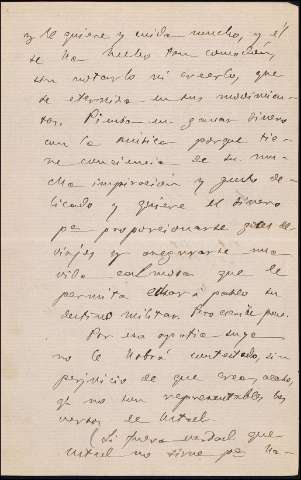 y le quiere y cuida mucho, y él
se ha hecho tan comodón,
sin notarlo ni creerlo, que
se eterniza en sus movimien-
tos. Piensa en ganar dinero
con la música porque tie-
ne conciencia de su mu-
cha inspiración y gusto de-
licado y quiere el dinero
pa proporcionarse goces de
viajes y asegurarse una
vida calmosa que le
permita echar á pablo su
destino militar. Pero escribe poco.
Por esa apatia suya
no le habrá contestado, sin
perjuicio de que crea, acaso,
q. no son representables los
versos de Usted.
(Si fuera verdad que
Usted no sirve pa ha-